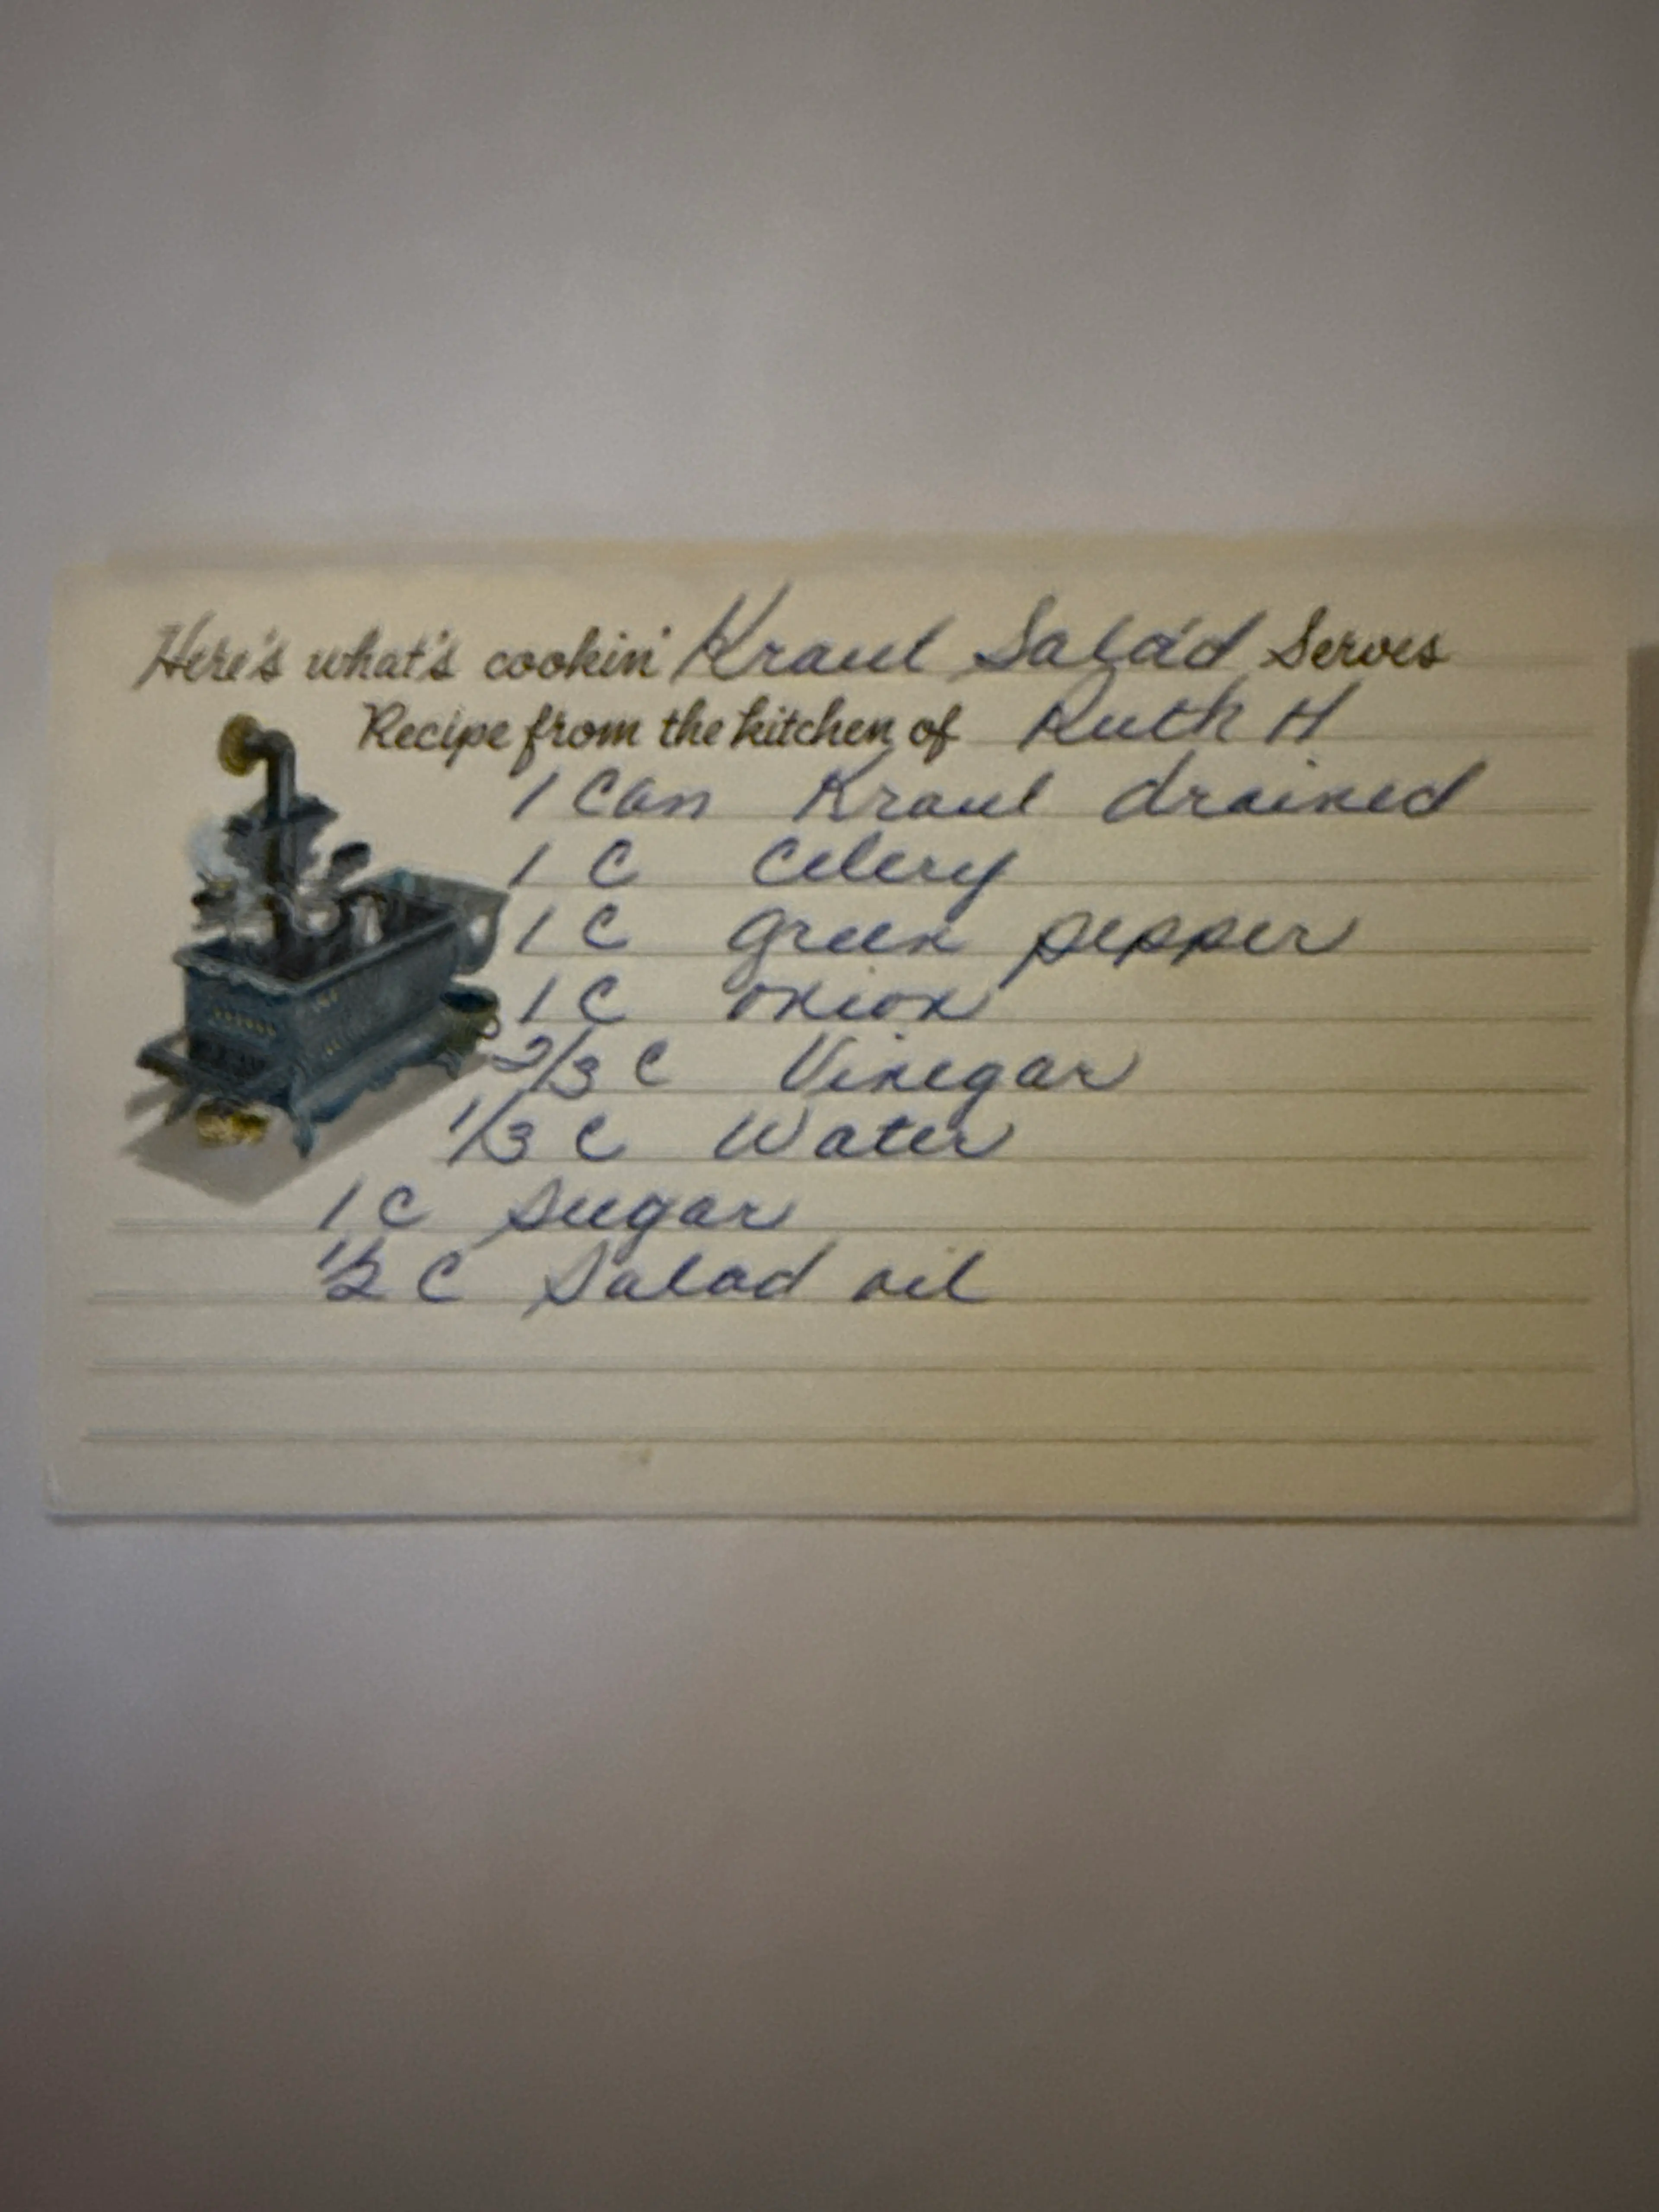 Here's what's cookin' Kraut Salad Serves
Recipe from the kitchen of Ruth H
1 Can Kraut drained
1 C Celery
1 C green pepper
1 C onion
2/3 C Vinegar
1/3 C Water
1 C Sugar
1/2 C Salad oil